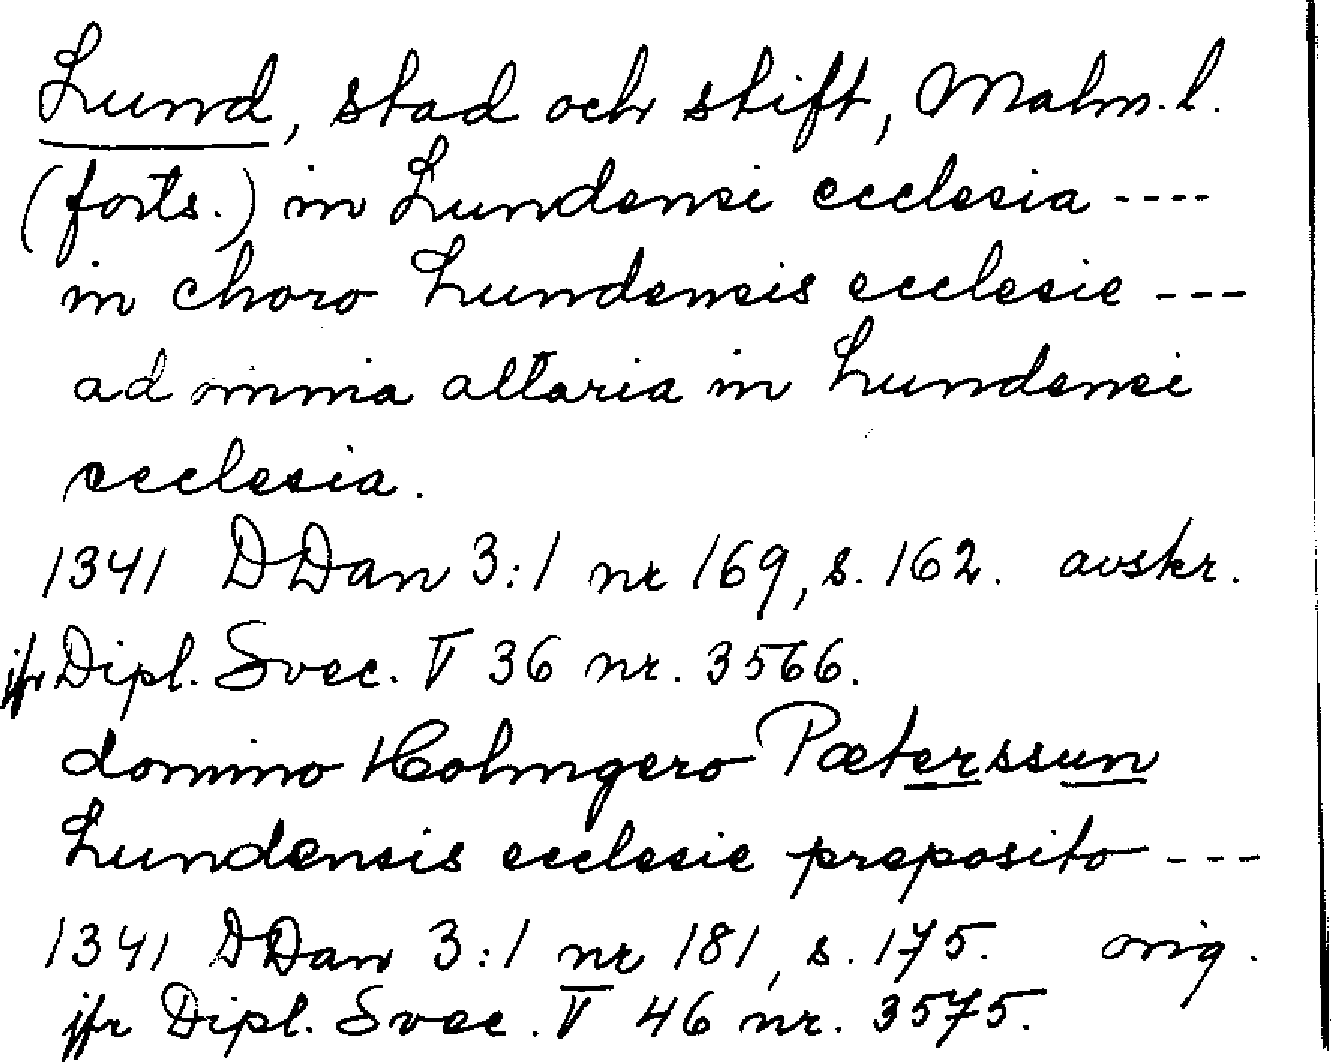 Lund, stad och stift, Malm. l.
(forts.) in Lundensi ecclesia ----
in choro Lundensis ecclesie ---
ad omnia altaria in Lundensi
ecclesia.
1341 DDan 3:1 nr 169, s. 162. avskr.
jfr Dipl. Svec. V 36 nr. 3566.
domino Holmgero Pæterssun
Lundensis ecclesie preposito ---
1341 DDan 3:1 nr 181, s. 175. orig.
jfr Dipl. Svec. V 46 nr. 3575.